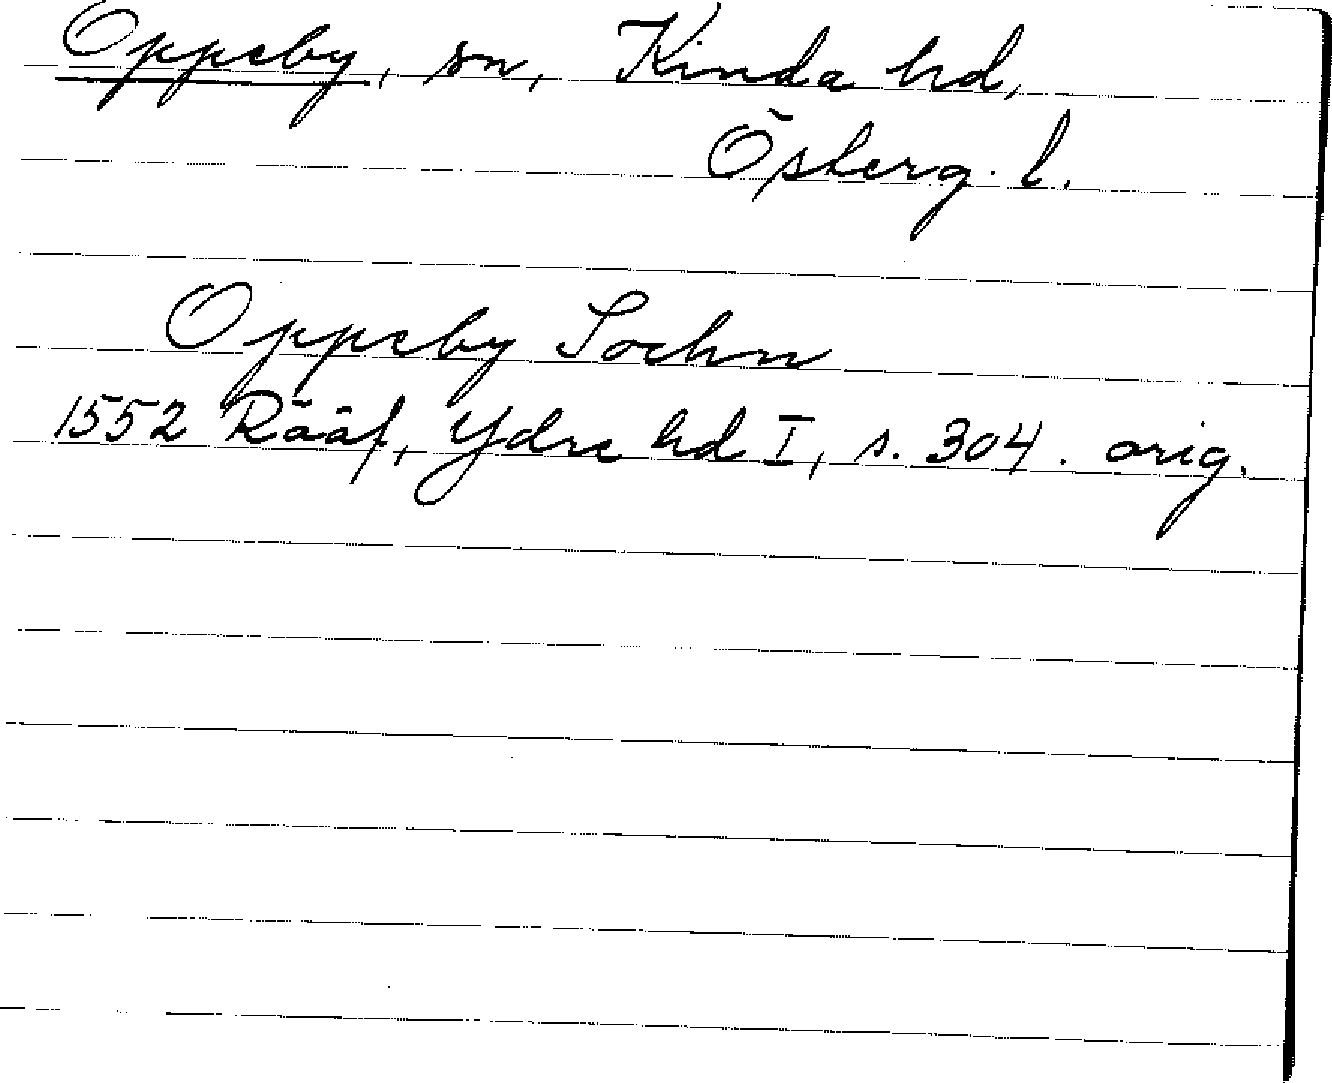 Oppeby, sn, Kinda hd,
Österg. l.
Oppeby Sochn
1552 Rääf, Ydre hd I, s. 304. orig.